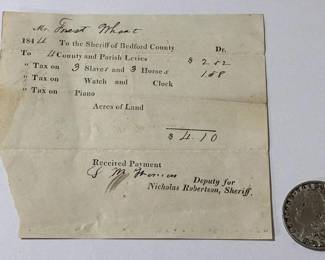 Mr. Trent Wheat
1844 To the Sheriff of Bedford County Dr.
To 4 County and Parish Levies $ 2.52
" Tax on 3 Slaves and 3 Horses 1.58
" Tax on Watch and Clock
" Tax on Piano
Acres of Land
$ 4.10
Received Payment
Deputy for
Nicholas Robertson, Sheriff.